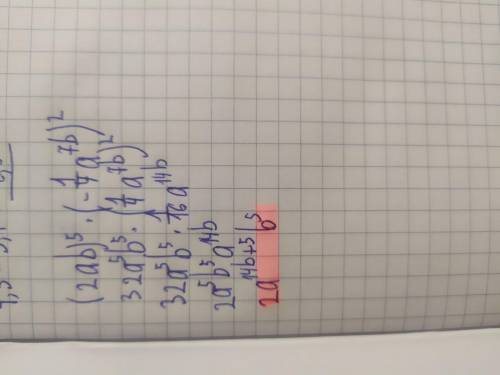 (2ab)⁵ · (-1/4 a⁷ᵇ)²
32a⁵b⁵ · (1/4 a⁷ᵇ)²
32a⁵b⁵ · 1/16 a¹⁴ᵇ
2a⁵b⁵a¹⁴ᵇ
2a¹⁴ᵇ⁺⁵b⁵